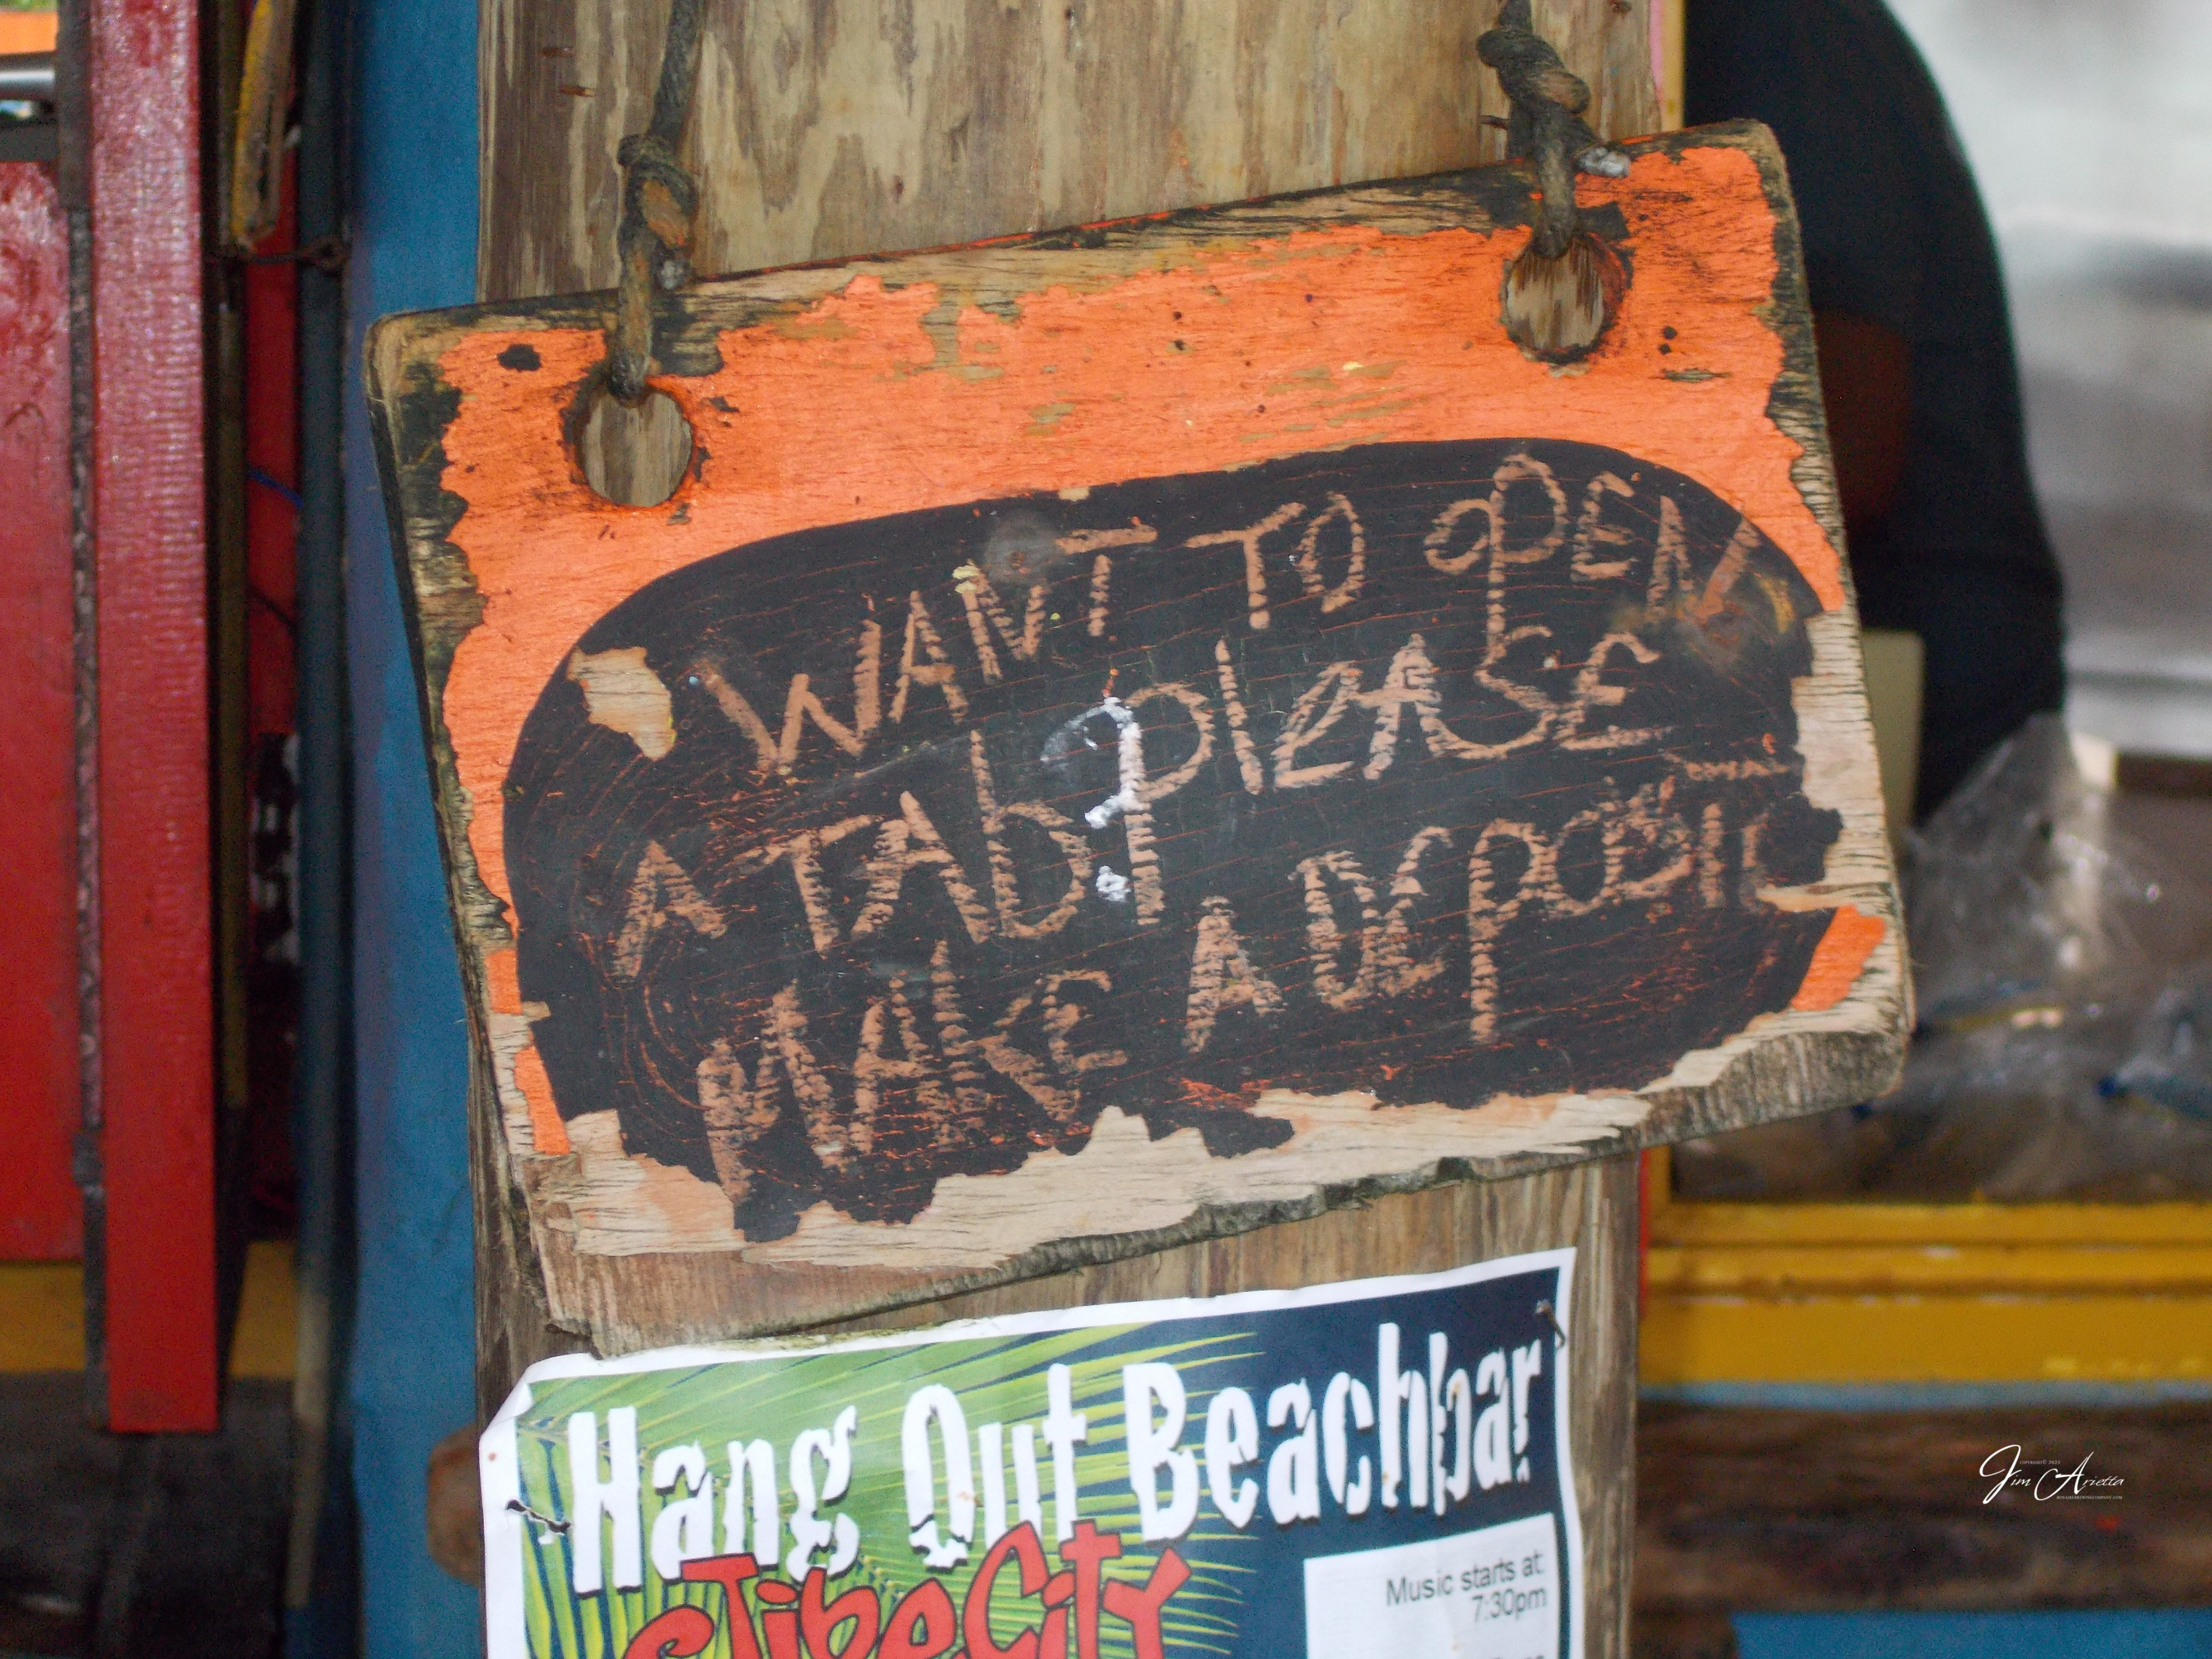 WANT TO OPEN
A TAb? PleASE
MAKE A DEPOSIT
Hang Out Beachbar
Jibe City
Music starts at:
7:30pm
COPYRIGHT© 2022
Jim Arietta